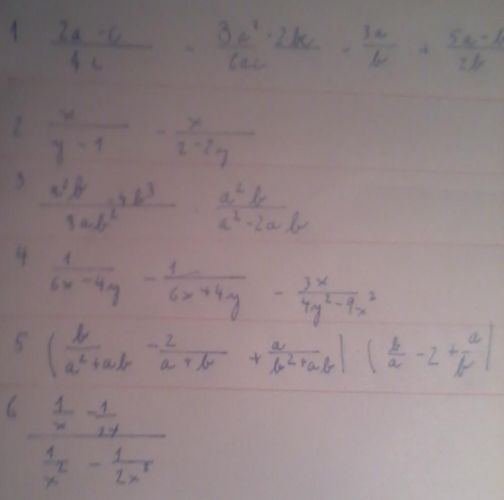 1 (2a - c)/(4c) - (3a² - 2bc)/(6ac) - 3a/b + (5a - b)/(2b)
2 x/(y - 1) - x/(2 - 2y)
3 (a²b - 4b³)/(3ab²) · a²b/(a² - 2ab)
4 1/(6x - 4y) - 1/(6x + 4y) - 3x/(4y² - 9x²)
5 (b/(a² + ab) - 2/(a + b) + a/(b² + ab)) (b/a - 2 + a/b)
6 (1/x - 1/2x)/(1/x² - 1/2x³)